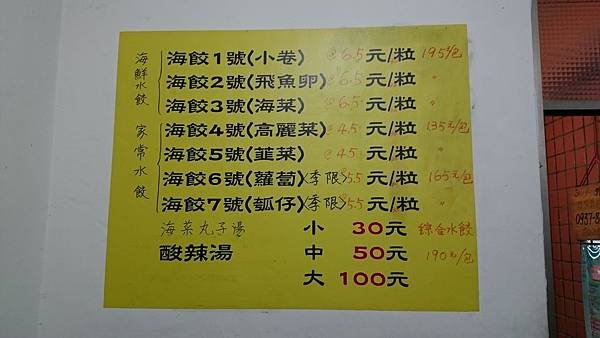 海鮮水餃
海餃1號(小卷) @6.5元/粒 195元/包
海餃2號(飛魚卵) @6.5元/粒 〃
海餃3號(海菜) @6.5元/粒 〃
家常水餃
海餃4號(高麗菜) @4.5元/粒 135元/包
海餃5號(韮菜) @4.5元/粒 〃
海餃6號(蘿蔔)(季限)@5.5元/粒 165元/包
海餃7號(瓠仔)(季限)@5.5元/粒 〃
海菜丸子湯 小 30元 綜合水餃
酸辣湯 中 50元 190元/包
大 100元
0937-8